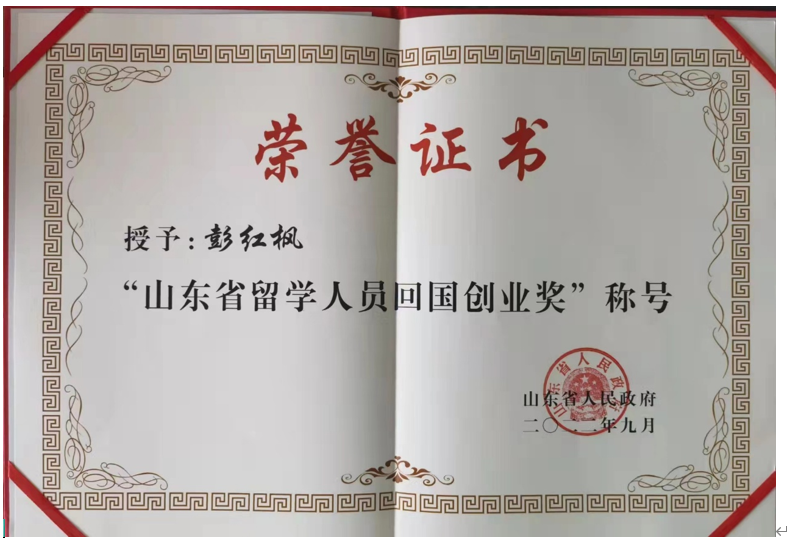 荣誉证书
授予：彭红枫
“山东省留学人员回国创业奖”称号
山东省人民政府
山东省人民政府
二〇二二年九月